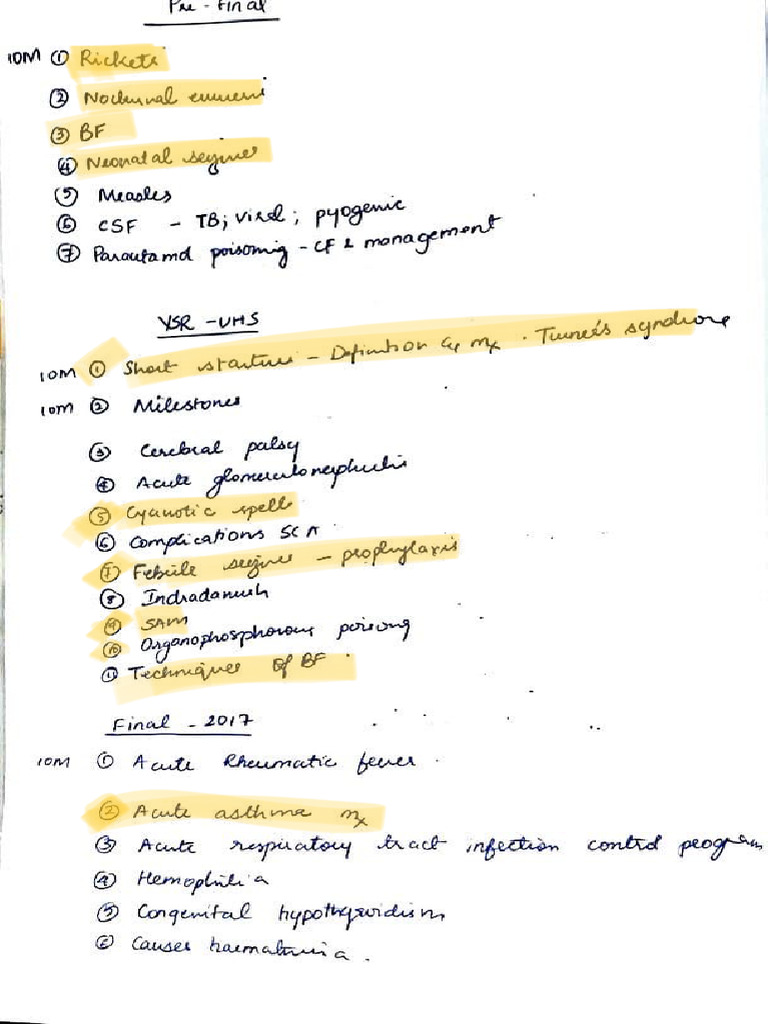 Pre-Final
10M ① Rickets
② Nocturnal enuresis
③ BF
④ Neonatal seizures
⑤ Measles
⑥ CSF - TB; viral; pyogenic
⑦ Paracetamol poisoning - CF & management
YSR - UHS
10M ① Short stature - Definition Rx. Turner's syndrome
10M ② Milestones
③ Cerebral palsy
④ Acute glomerulonephritis
⑤ Cyanotic spell
⑥ Complications SCA
⑦ Febrile seizures - prophylaxis
⑧ Indradanush
⑨ SAM
⑩ Organophosphorous poisoning
⑪ Techniques of BF.
Final - 2017
10M ① Acute Rheumatic fever.
② Acute asthma Rx
③ Acute respiratory tract infection control program
④ Hemophilia
⑤ Congenital hypothyroidism
⑥ Causes haematuria.